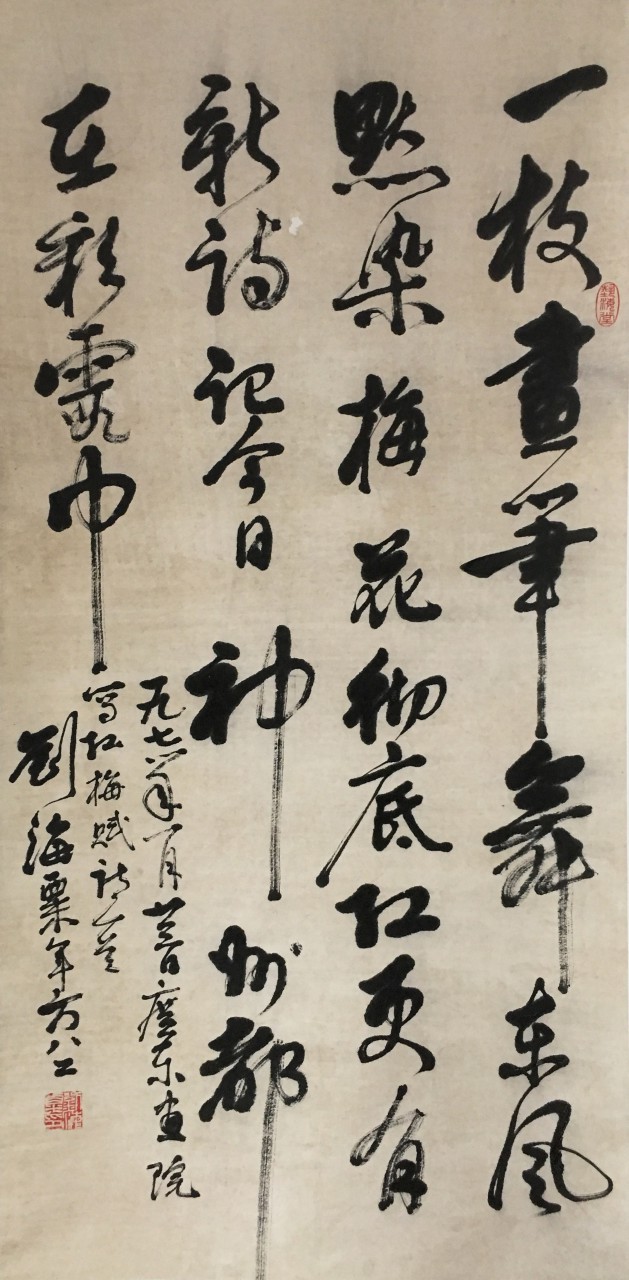 一枝畫筆舞东风
點染梅花彻底红更有
新诗记今日神州都
在彩霞中
一九七八年一月廿日廣东画院
写红梅赋诗一首
劉海粟年方八二